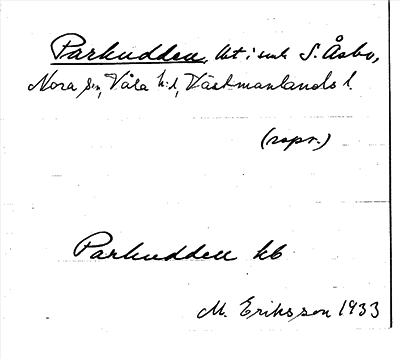 Parkudden, lht i smh S. Åsbo,
Nora sn, Våla hd, Västmanlands l.
(uspr.)
Parkudden kb
M. Eriksson 1933